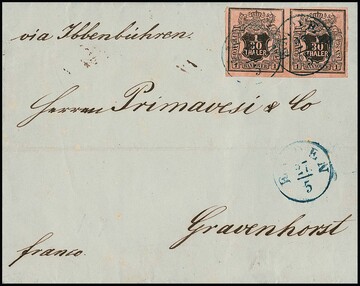 via Ibbenbühren.
1/30 THALER 1/30 THALER
Herren Primavesi & Co
EMDEN
17/5
Gravenhorst
franco.